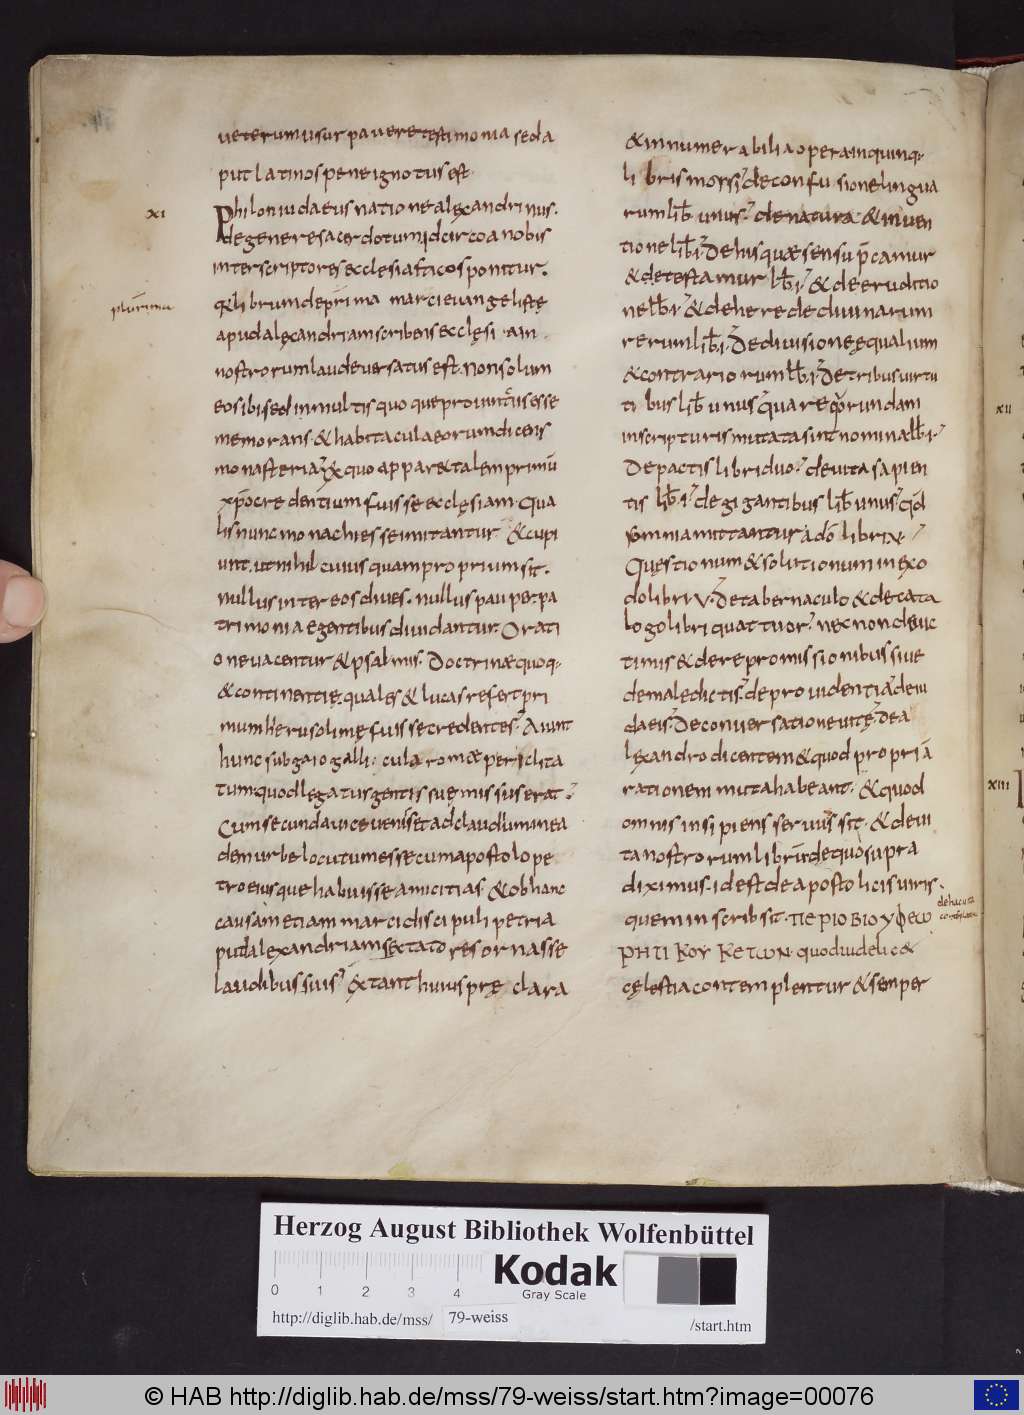 ueterum usurpauere testimonia sed a
put latinos pene ignotus est
XI
Philon iudaeus natione alęxandrinus.
de genere sacerdotum idcirco a nobis
inter scriptores ecclesiasticos ponitur.
plurima
Qd librum de prima marci euangelistę
apud alęxandriam scribens ecclęsia in
nostrorum laude uersatus est. Non solum
eos ibi sed in multis quoque prouintiis esse
memorans. & habitacula eorum dicens
monasteria. Ex quo apparet talem primū
xp̄o credentium fuisse ecclęsiam. Qua
lis nunc monachi esse imitantur & cupi
unt. ut nihil cuiusquam proprium sit.
nullus inter eos diues. nullus pauper. pa
trimonia egentibus diuidantur. Orati
one uacentur & psalmis. Doctrinæ quoq;
& continentię. quales & lucas refert pri
mum hierusolimę fuisse credentes. Aiunt
hunc sub gaio galliculá romæ periclita
tum. quod legatus gentis suę missus erat.
Cum secunda uice uenisset ad claudium in ea
dem urbe locutum esse cum apostolo pe
tro eiusque habuisse amicitias. & ob hanc
causam etiam marci discipuli petri a
pud alęxandriam sectatores ornasse
laudibus suis. Extant huius pręclara
& innumerabilia opera in quinq;
libris mosi. de confusione lingua
rum lib̄ unus. de natura & inuen
tione lib̄.i. De his quæ sensu p̄camur
& detestamur lib̄.i. & de eruditio
ne lib̄.i. & de herede diuinarum
rerum lib̄.i. De diuisione ęqualium
& contrariorum lib̄.i. De tribus uirtu
tibus lib̄ unus. Quare quorundam
in scripturis mutata sint nomina lib̄.i.
De pactis libri duo. de uita sapien
tis lib̄.i. de gigantibus lib̄ unus. qd̄
somnia mittantur á dō libri v.
Quęstionum & solutionum in exo
do libri V. De tabernaculo & decata
logo libri quattuor. nec non de uic
timis & de repromissionibus siue
de maledictis. de prouidentia. de iu
daeis. De conuersatione uitę. De a
lęxandro dicentem & quod propriā
rationem muta habeant. & quod
omnis insipiens seruus sit. & de ui
ta nostrorum librū de quo supra
diximus. id est de apostolicis uiris.
de hac uita
quem inscribsit. ΠΕΡΙΟ ΒΙΟΥ ΦΕω
ΡΗΤΙΚΟΥ ΚΕΤωΝ. quod uidelic&
cęlestia contemplentur & semper
XII
XIII
Herzog August Bibliothek Wolfenbüttel
0 1 2 3 4
Kodak
Gray Scale
http://diglib.hab.de/mss/ 79-weiss /start.htm
© HAB http://diglib.hab.de/mss/79-weiss/start.htm?image=00076